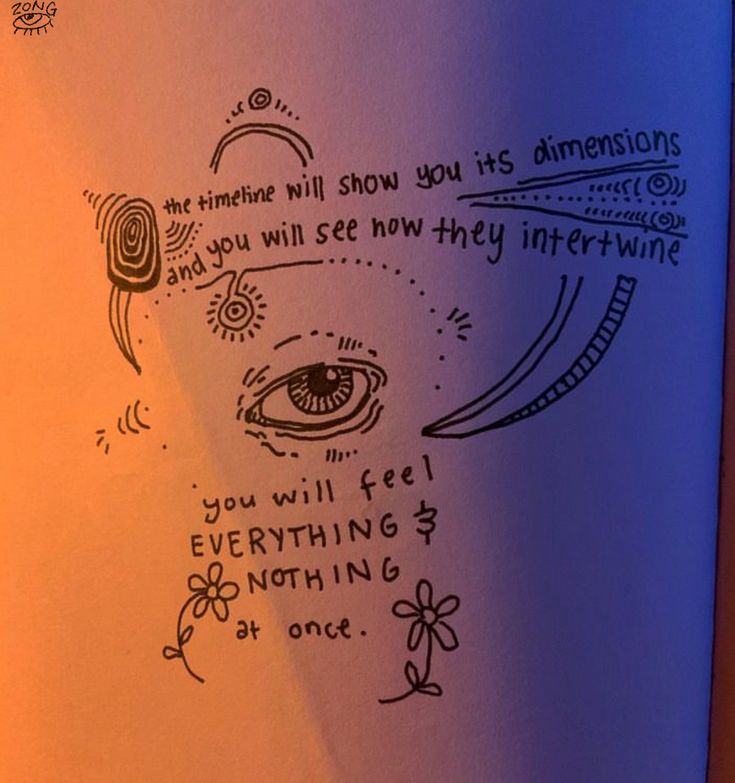 ZONG
the timeline will show you its dimensions
and you will see how they intertwine
you will feel
EVERYTHING &
NOTHING
at once.